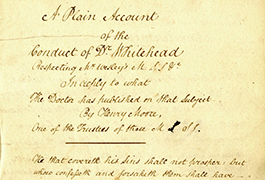 A Plain Account
of the
Conduct of Dr. Whitehead
Respecting Mr. Wesley's M.SS &c.
In reply to what
The Doctor has published on that Subject.
By Henry Moore,
One of the Trustees of those M.SS.
He that covereth his Sins shall not prosper, but
whoso confesseth and forsaketh them shall have